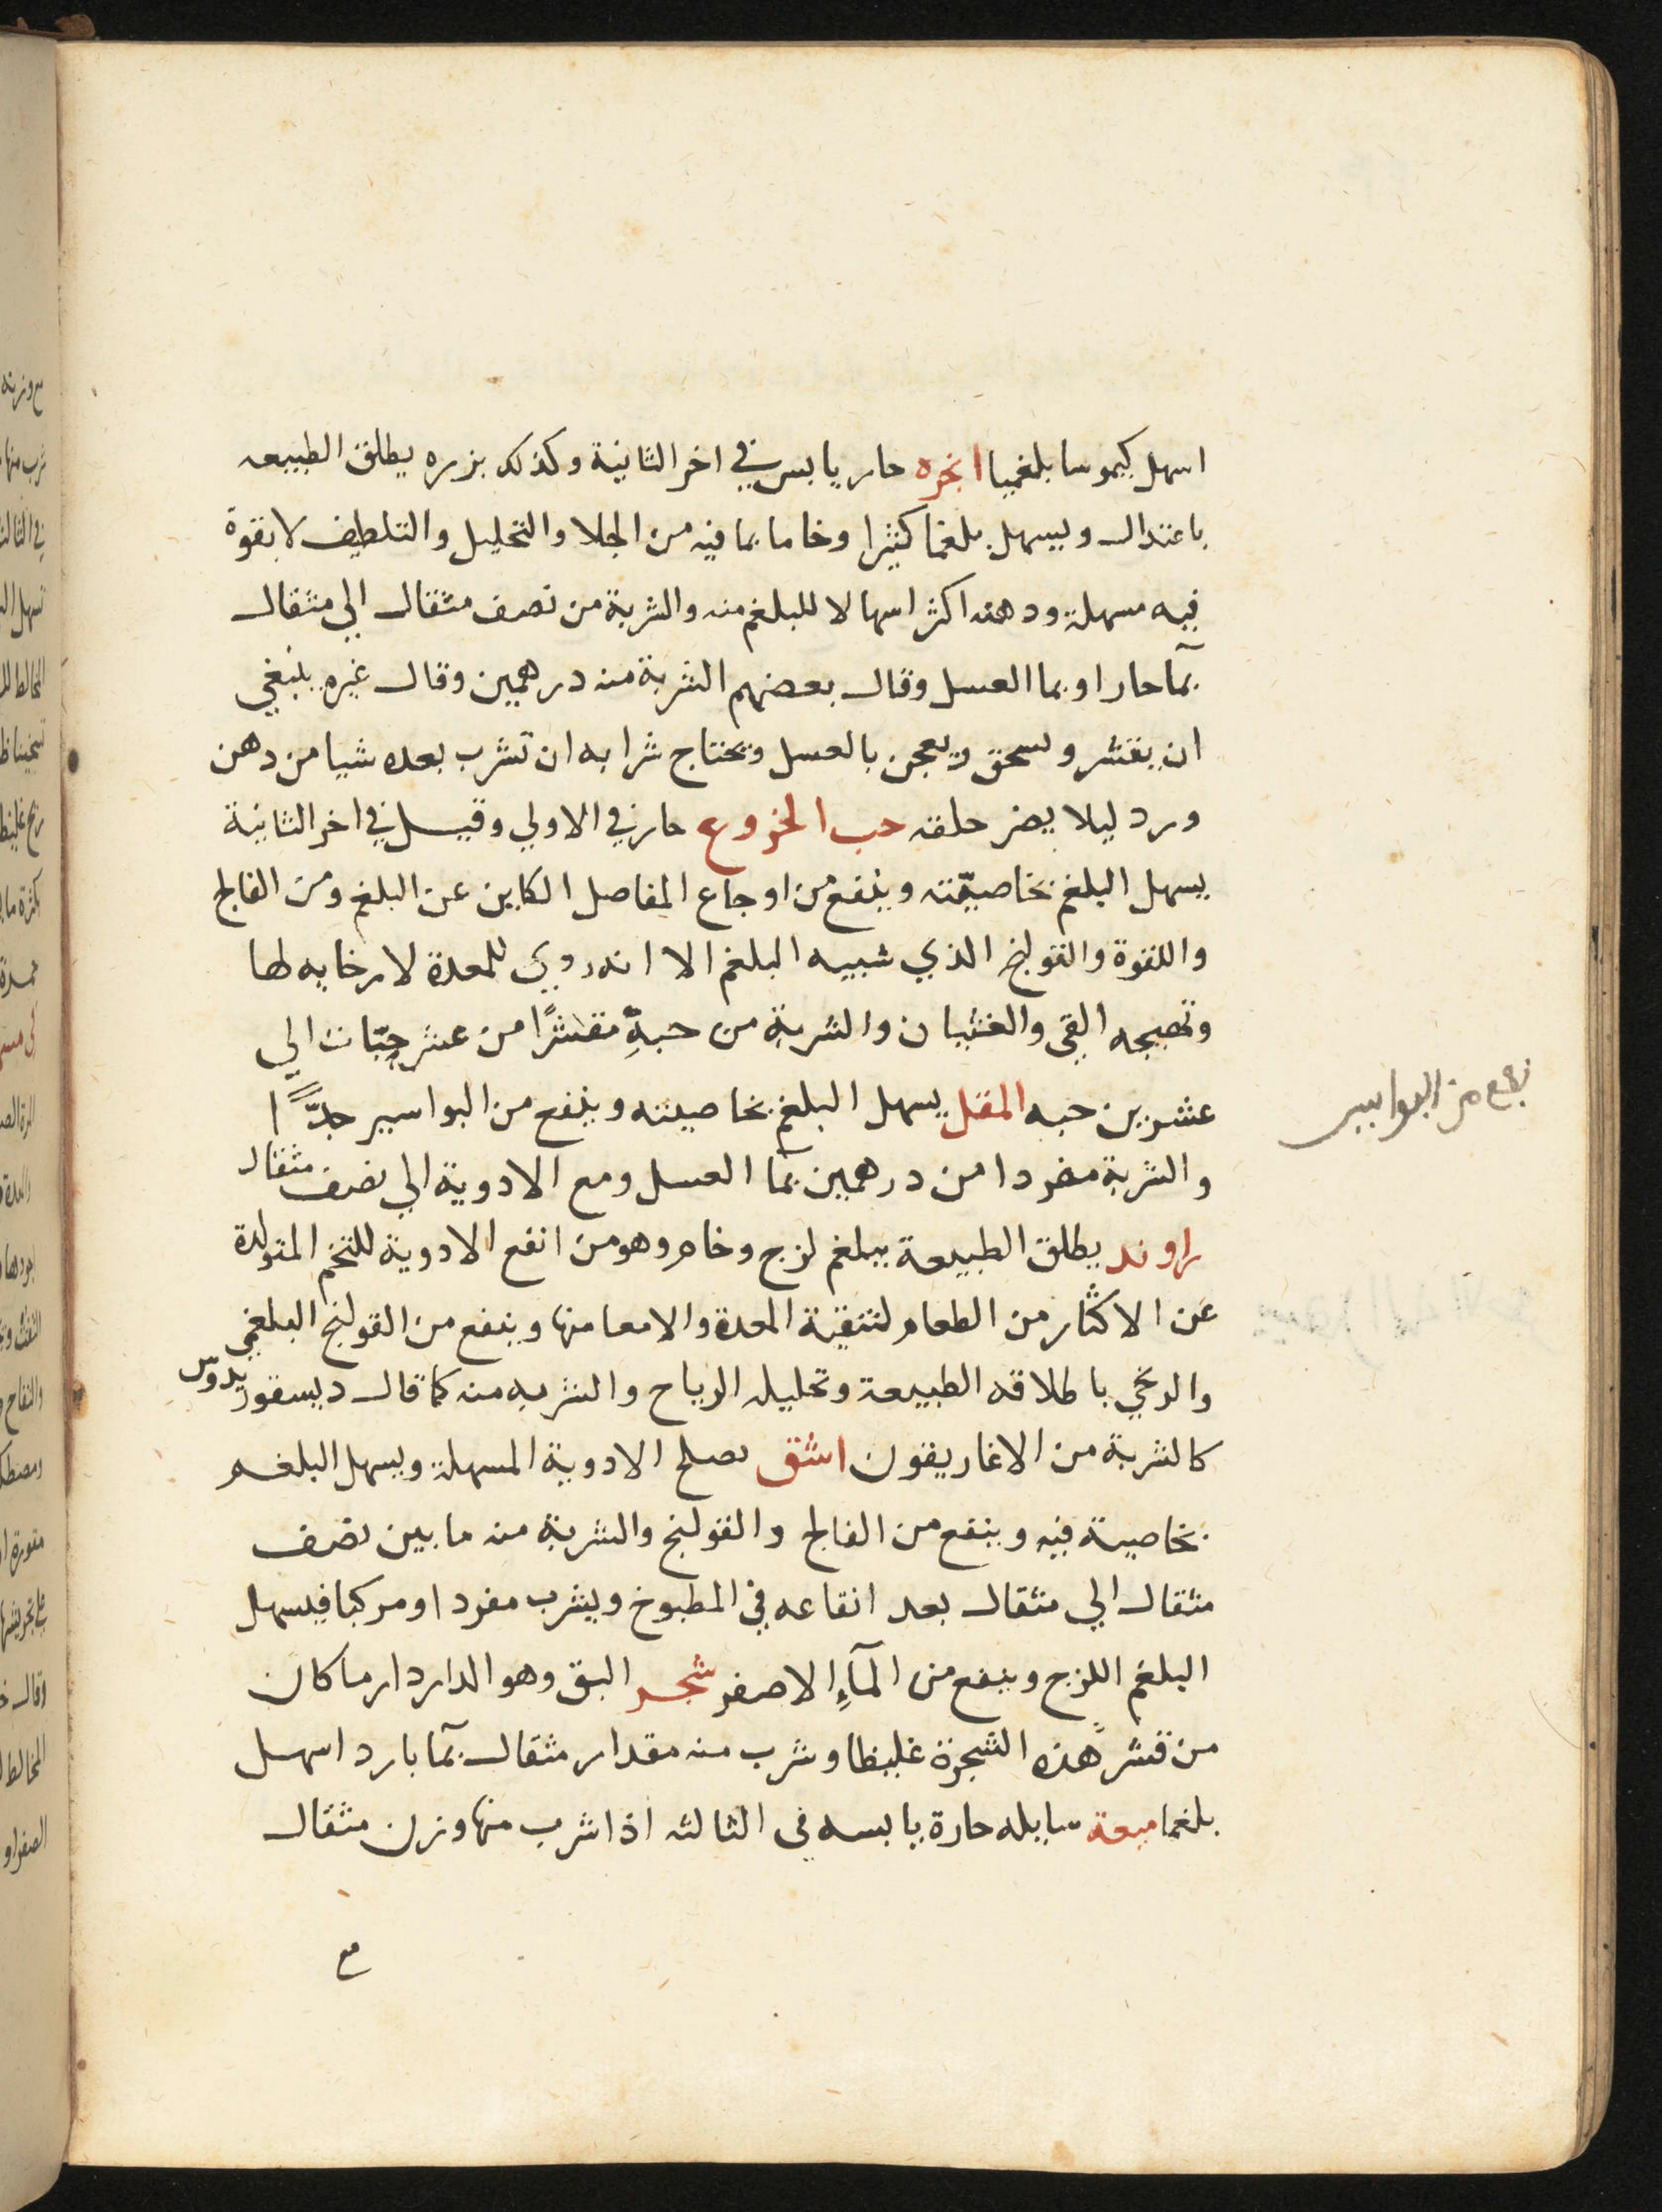 اسهل كيموسا بلغميا انجره حار يابس في اخر الثانية وكذلك بزره يطلق الطبيعه
باعتدال ويسهل بلغما كثيرا وخاما بما فيه من الجلا والتحليل والتلطيف لا بقوة
فيه مسهلة ودهنه اكثر اسهالا للبلغم منه والشربة من نصف مثقال الي مثقال
بمآ حار او بما العسل وقال بعضهم الشربة منه درهمين وقال غيره ينبغي
ان يقشر ويسحق ويعجن بالعسل ويحتاج شرابه ان تشرب بعده شيا من دهن
ورد ليلا يضر حلقه حب الخروع حار في الاولي وقيل في اخر الثانية
يسهل البلغم بخاصيّته وينفع من اوجاع المفاصل الكاين عن البلغم ومن الفالج
واللقوة والقولنج الذي شبيه البلغم الا انه ردي للمعدة لارخايه لها
وتهيجه القي والغثيان والشربة من حبهِّ مقشرًا من عشر حبّات الي
عشرين حبه المقل يسهل البلغم بخاصيته وينفع من البواسير جدًّا
والشربة مفردا من درهمين بمآ العسل ومع الادوية الي نصف مثقال
راوند يطلق الطبيعة ببلغم لزج وخام وهو من انفع الادوية للتخم المتولدة
عن الاكثار من الطعام لتنقية المعدة والامعا منها وينفع من القولنج البلغمي
والريحي باطلاقه الطبيعة وتحليله الرياح والشربه منه كما قال ديسقوريدوس
كالشربة من الاغاريقون اشق يصلح الادوية المسهلة ويسهل البلغم
بخاصية فيه وينفع من الفالج والقولنج والشربة منه ما بين نصف
مثقال الي مثقال بعد انقاعه في المطبوخ ويشرب مفردا ومركبا فيسهل
البلغم اللزج وينفع من المآءِ الاصفر شجر البق وهو الداردار ما كان
من قشر هذه الشجرة غليظا وشرب منه مقدار مثقال بمآ بارد اسهل
بلغما ميعة سايله حارة يابسه في الثالثه اذا شرب منها وزن مثقال
مع
نفع من البواسير